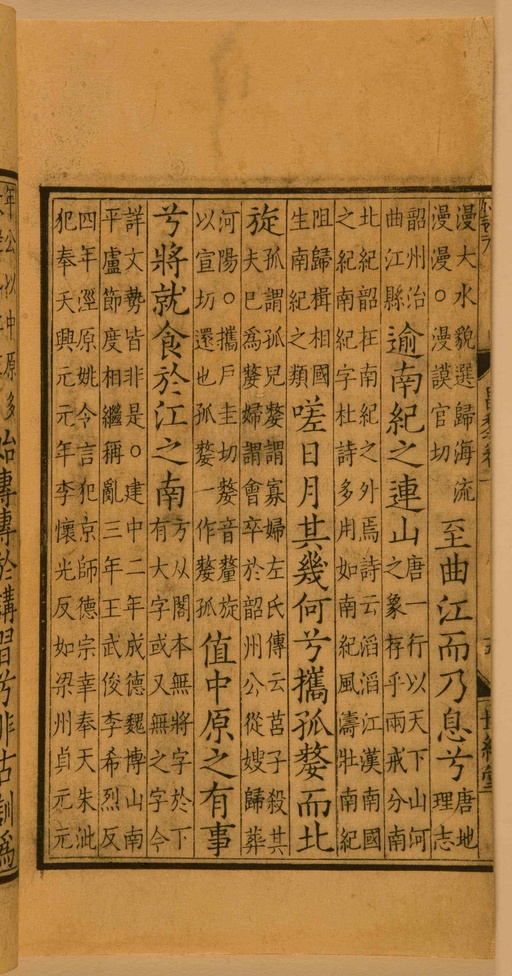 漫大水貌選歸海流
漫漫〇漫謨官切
至曲江而乃息兮
唐地
理志
韶州治
曲江縣
逾南紀之連山
唐一行以天下山河
之象存乎兩戒分南
北紀韶在南紀之外焉詩云滔滔江漢南國
之紀南紀字杜詩多用如南紀風濤壯南紀
阻歸楫相國
生南紀之類
嗟日月其幾何兮攜孤嫠而北
旋
孤謂孤兒嫠謂寡婦左氏傳云莒子殺其
夫已爲嫠婦謂會卒於韶州公從嫂歸葬
河陽〇攜戶圭切嫠音釐旋
以宣切還也孤嫠一作嫠孤
值中原之有事
兮將就食於江之南
方从閣本無將字於下
有大字或又無之字今
詳文勢皆非是〇建中二年成德魏博山南
平盧節度相繼稱亂三年王武俊李希烈反
四年涇原姚令言犯京師德宗幸奉天朱泚
犯奉天興元元年李懷光反如梁州貞元元
年公以中原多
始專專於講習兮非古訓爲